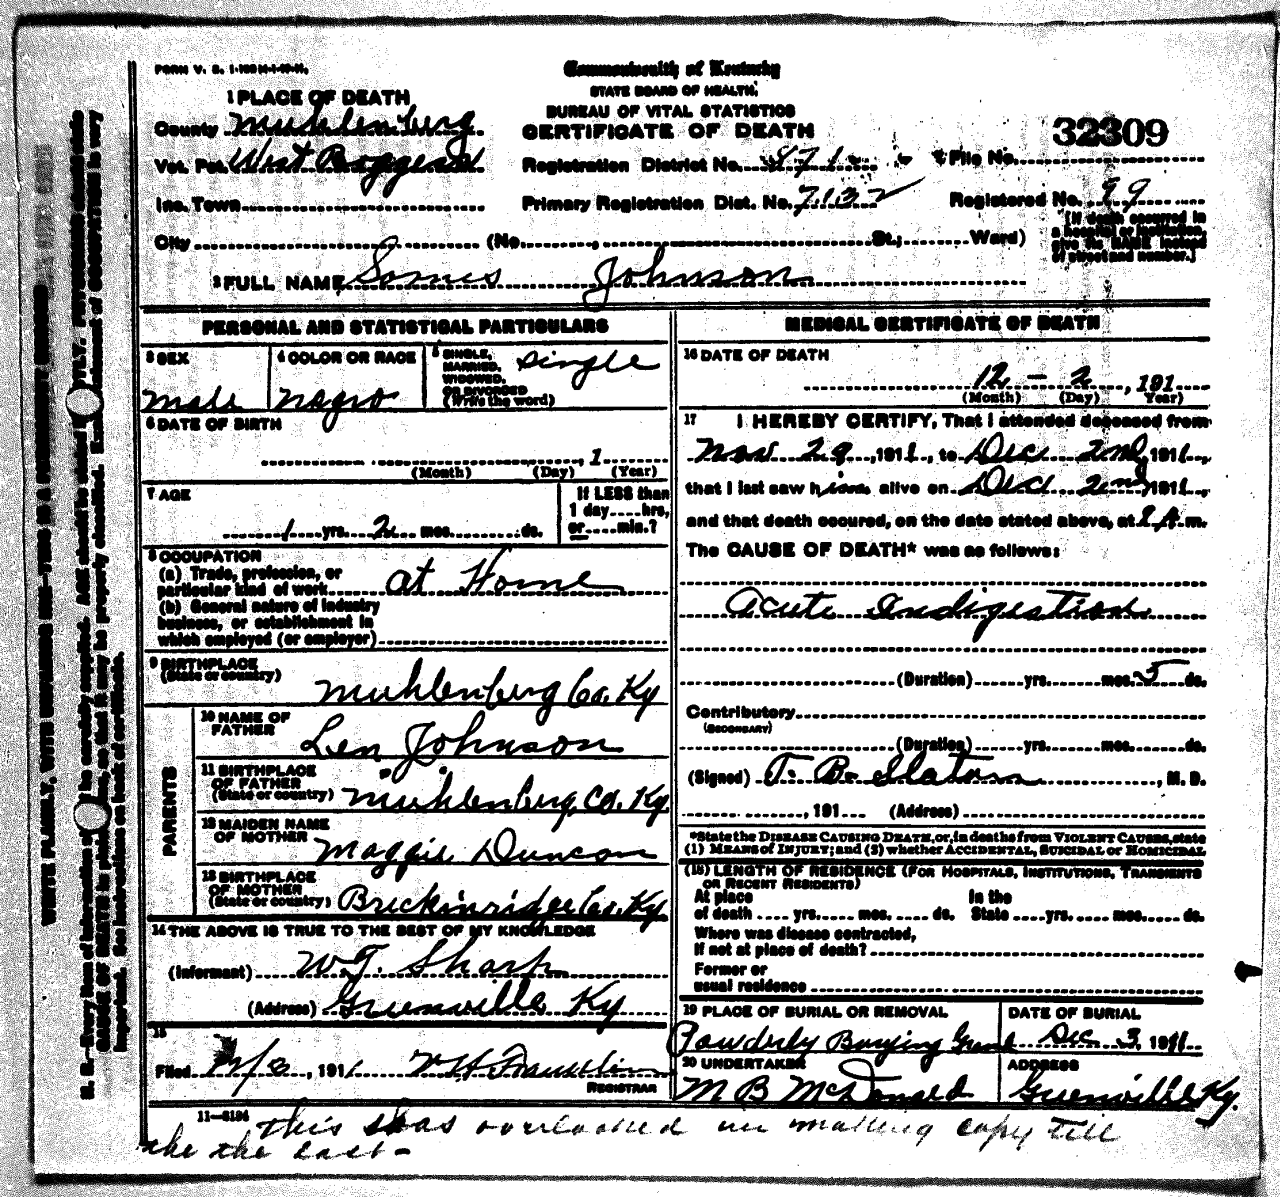 FORM V. S. 1-
Commonwealth of Kentucky
STATE BOARD OF HEALTH.
BUREAU OF VITAL STATISTICS
CERTIFICATE OF DEATH
32309
1 PLACE OF DEATH
County Muhlenburg
Vot. Pct. West Boggess
Inc. Town
City (No. , St.; Ward)
Registration District No. 871
File No.
Primary Registration Dist. No. 7132
Registered No. 99
[If death occurred in
a hospital or institution,
give its NAME instead
of street and number.]
2 FULL NAME Johnson
PERSONAL AND STATISTICAL PARTICULARS
3 SEX
male
4 COLOR OR RACE
negro
5 SINGLE,
MARRIED,
WIDOWED,
OR DIVORCED
(Write the word)
single
6 DATE OF BIRTH
, 1
(Month) (Day) (Year)
7 AGE
1 yrs. 2 mos. ds.
If LESS than
1 day....hrs,
or....min.?
8 OCCUPATION
(a) Trade, profession, or
particular kind of work at Home
(b) General nature of industry
business, or establishment in
which employed (or employer)
9 BIRTHPLACE
(State or country)
Muhlenberg Co. Ky
PARENTS
10 NAME OF
FATHER
Len Johnson
11 BIRTHPLACE
OF FATHER
(State or country) Muhlenberg, Co. Ky
12 MAIDEN NAME
OF MOTHER
Maggie Duncan
13 BIRTHPLACE
OF MOTHER
(State or country) Breckinridge Co. Ky
14 THE ABOVE IS TRUE TO THE BEST OF MY KNOWLEDGE
(Informant) W.J. Sharp
(Address) Greenville Ky
15
Filed , 1911 W H Franklin
REGISTRAR
11-5194
MEDICAL CERTIFICATE OF DEATH
16 DATE OF DEATH
12 - 2 , 191
(Month) (Day) Year)
17 I HEREBY CERTIFY, That I attended deceased from
Nov 29, 1911, to Dec 2nd, 1911,
that I last saw him alive on Dec 2nd 1911,
and that death occured, on the date stated above, at A m.
The CAUSE OF DEATH* was as follows:
Acute Indigestion
(Duration) yrs. mos. 5 ds.
Contributory
(SECONDARY)
(Duration) yrs. mos. ds.
(Signed) T. B. , M. D.
, 191 (Address)
*State the DISEASE CAUSING DEATH, or, in deaths from VIOLENT CAUSES, state
(1) MEANS of INJURY; and (2) whether ACCIDENTAL, SUICIDAL or HOMICIDAL
(18) LENGTH OF RESIDENCE (FOR HOSPITALS, INSTITUTIONS, TRANSIENTS
OR RECENT RESIDENTS)
At place In the
of death .... yrs. mos. ds. State ....yrs. mos. ds.
Where was disease contracted,
If not at place of death?
Former or
usual residence
19 PLACE OF BURIAL OR REMOVAL
Powderly Burying Ground
DATE OF BURIAL
Dec 3, 1911
20 UNDERTAKER
M B McDonald
ADDRESS
Greenville Ky.
this was overlooked in making copy till
the the last -
WRITE PLAINLY, WITH UNFADING INK—THIS IS A PERMANENT RECORD
N. B.—Every item of information should be carefully supplied. AGE should be stated EXACTLY. PHYSICIANS should state
CAUSE OF DEATH in plain terms, so that it may be properly classified. Exact statement of OCCUPATION is very
important. See instructions on back of certificate.